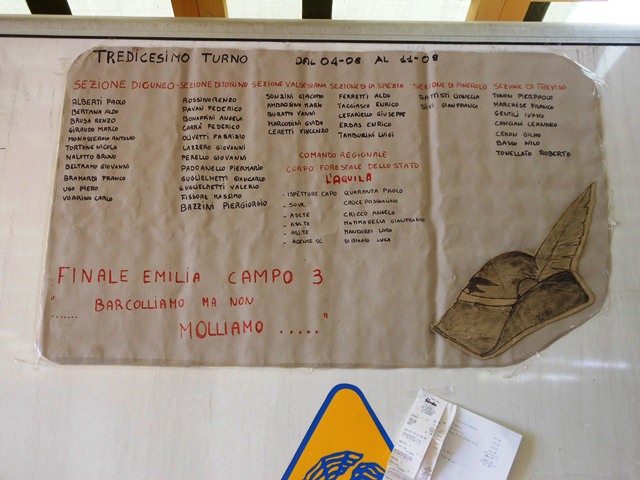 TREDICESIMO TURNO DAL 04-08 AL 11-08
SEZIONE DI CUNEO
ALBERTI PAOLO
BERTANA ALDO
BRUSA RENZO
GIRAUDO MARCO
MONASTEROLO ANTONIO
TORTONE NICOLA
NALOTTO BRUNO
BELTRAMO GIOVANNI
BRAMARDI FRANCO
UGO PIERO
VOARINO CARLO
SEZIONE DI TORINO
ROSSINO RENZO
PAVAN FEDERICO
BONAFINI ANGELO
CARRÀ FEDERICO
OLIVETTI FABRIZIO
LAZZERO GIOVANNI
PERELLO GIOVANNI
PADOANELLO PIERMARIO
GUGLIELMETTI GIANCARLO
GUGLIELMETTI VALERIO
FISSORE MASSIMO
BAZZINI PIERGIORGIO
SEZIONE VALSESIANA
SONZINI GIACOMO
AMBROSINI MARK
BURATTO VANNI
MARCODINI GUIDO
CERETTI VINCENZO
SEZIONE DI LA SPEZIA
FERRETTI ALDO
TAGGIASCO ENRICO
CEFARIELLO GIUSEPPE
ERBAS ENRICO
TAMBURINI LUIGI
SEZIONE DI PINEROLO
GATTISTI DONELLA
GIANFRANCO
SEZIONE DI TREVISO
TONON PIERPAOLO
MARCHESE FRANCO
GENTILI IVANO
CANGIAN LEANDRO
CERON GILMO
BASSO NILO
TONELLATO ROBERTO
COMANDO REGIONALE
CORPO FORESTALE DELLO STATO
L'AQUILA
- ISPETTORE CAPO QUARANTA PAOLO
- SOVR. CROCE PASQUALINO
- ASS.TE CRICCO ANGELO
- ASS.TE MAMMARELLA GIANFRANCO
- ASS.TE MANDOZZI LARA
- AGENTE SC DI BIAGIO LUCA
FINALE EMILIA CAMPO 3
"...... BARCOLLIAMO MA NON
MOLLIAMO ....."